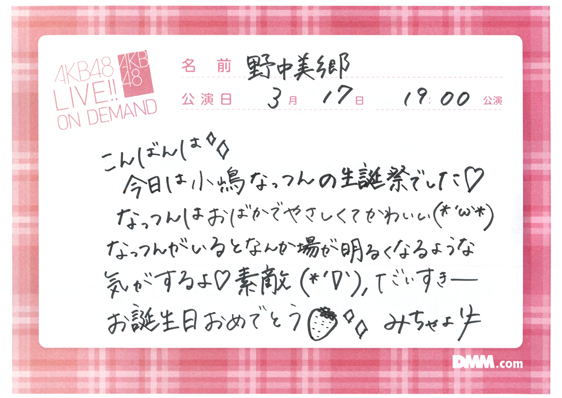 AKB48
LIVE!!
ON DEMAND
AKB
48
名前 野中美郷
公演日 3月 17日 19:00 公演
こんばんは
今日は小嶋なっつんの生誕祭でした♡
なっつんはおばかでやさしくてかわいい(*'ω'*)
なっつんがいるとなんか場が明るくなるような
気がするよ♡素敵(*'∇'),だいすきー
お誕生日おめでとう みちゃより
DMM.com